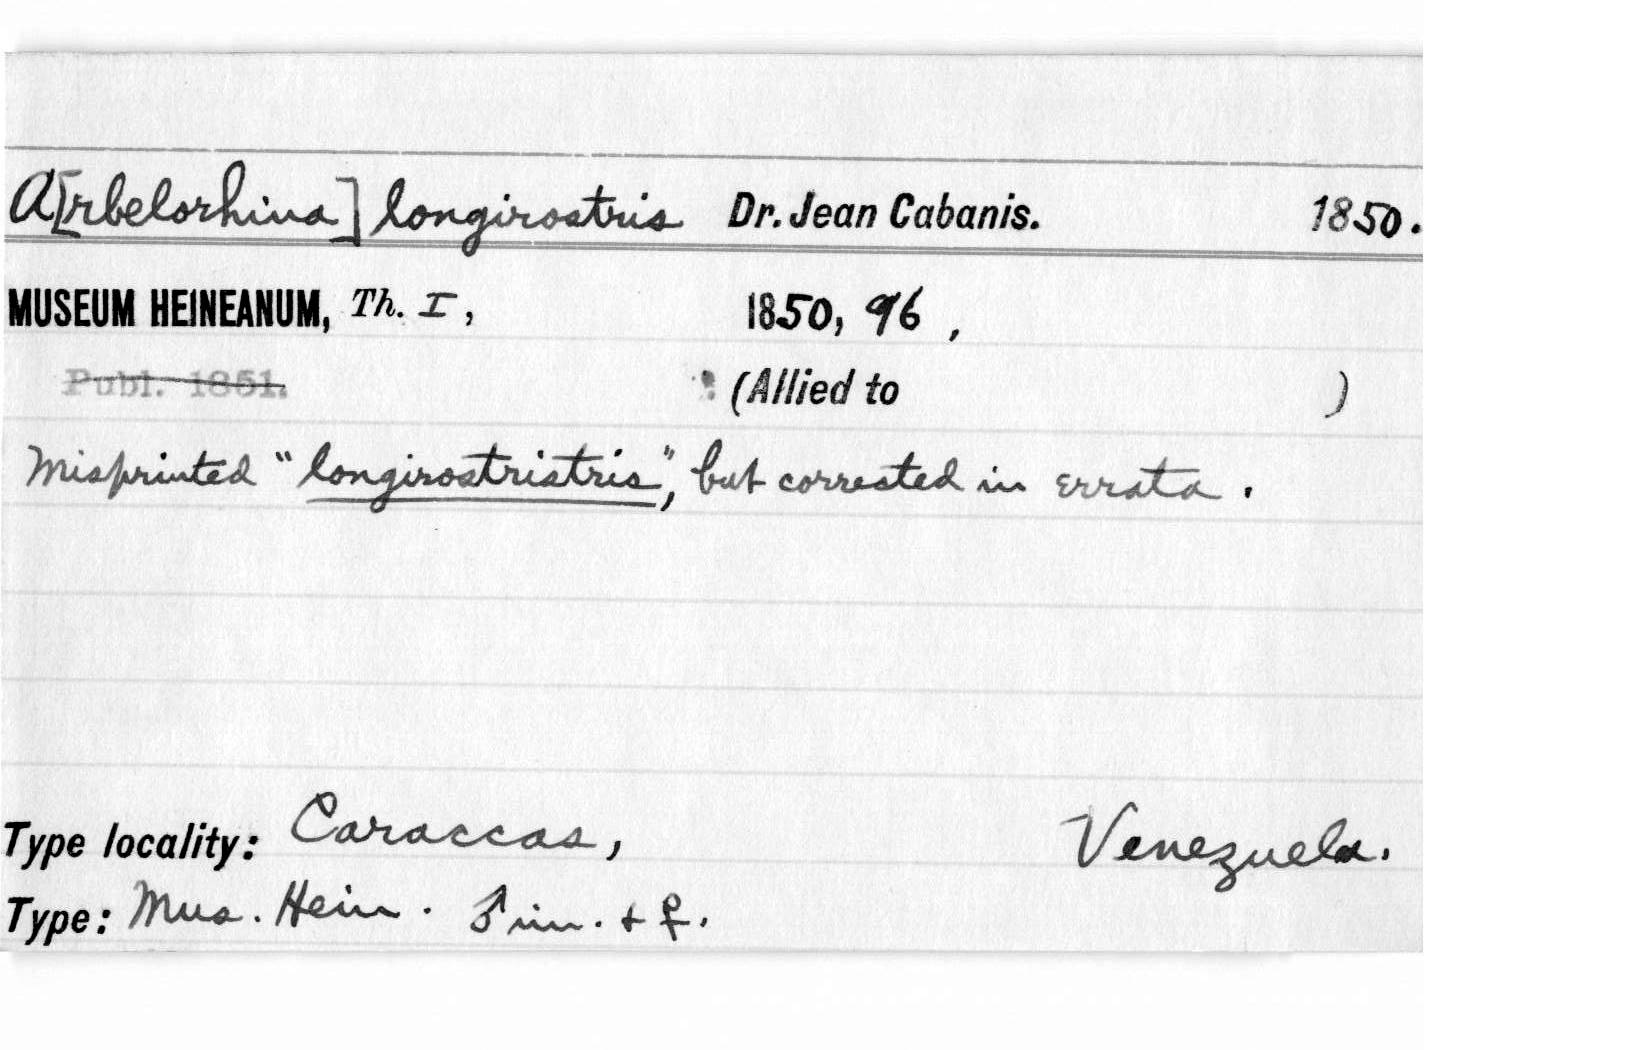 A[rbelorhina] longirostris Dr. Jean Cabanis. 1850.
MUSEUM HEINEANUM, Th. I, 1850, 96,
Publ. 1851. (Allied to )
Misprinted "longirostristris", but corrected in errata.
Type locality: Caraccas, Venezuela.
Type: Mus. Hein. ♂ im. + ♀.